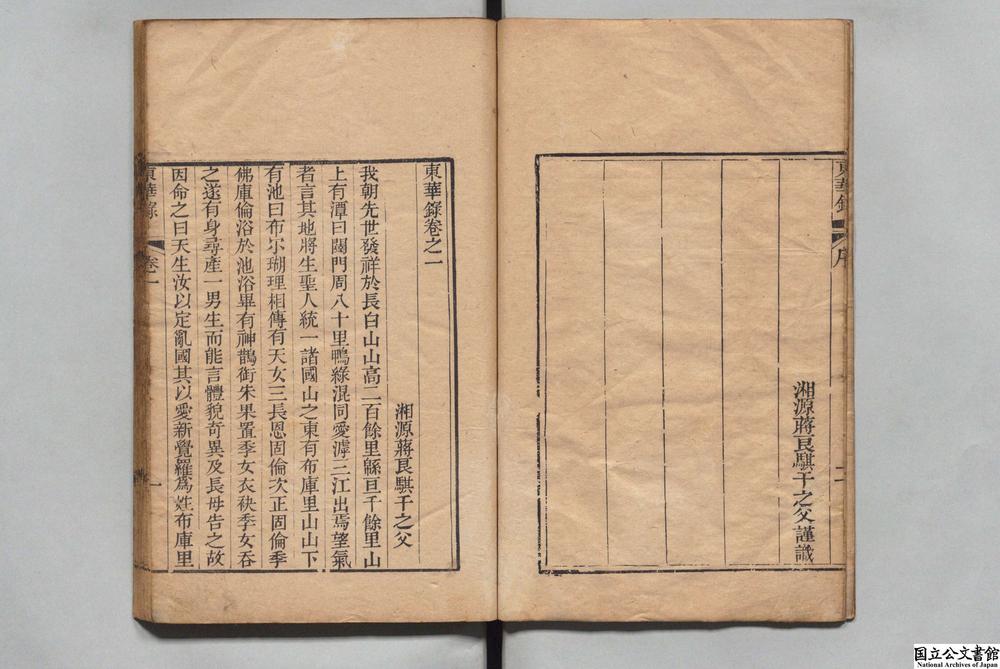 東華錄
序
二
湘源蔣良騏千之父謹識
東華錄卷之一
湘源蔣良騏千之父
我朝先世發祥於長白山山高二百餘里緜亘千餘里山
上有潭曰闥門周八十里鴨綠混同愛滹三江出焉望氣
者言其地將生聖人統一諸國山之東有布庫里山山下
有池曰布尔瑚理相傳有天女三長恩固倫次正固倫季
佛庫倫浴於池浴畢有神鵲銜朱果置季女衣袂季女吞
之遂有身尋產一男生而能言體貌奇異及長母告之故
因命之曰天生汝以定亂國其以愛新覺羅爲姓布庫里
東華錄
卷一
一
国立公文書館
National Archives of Japan